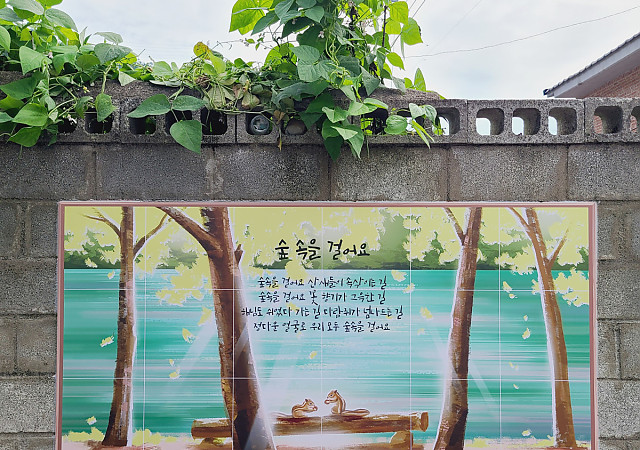 숲 속을 걸어요
숲속을 걸어요 산새들이 속삭이는 길
숲속을 걸어요 꽃 향기가 그윽한 길
해님도 쉬었다 가는 길 다람쥐가 넘나드는 길
정다운 얼굴로 우리 모두 숲속을 걸어요